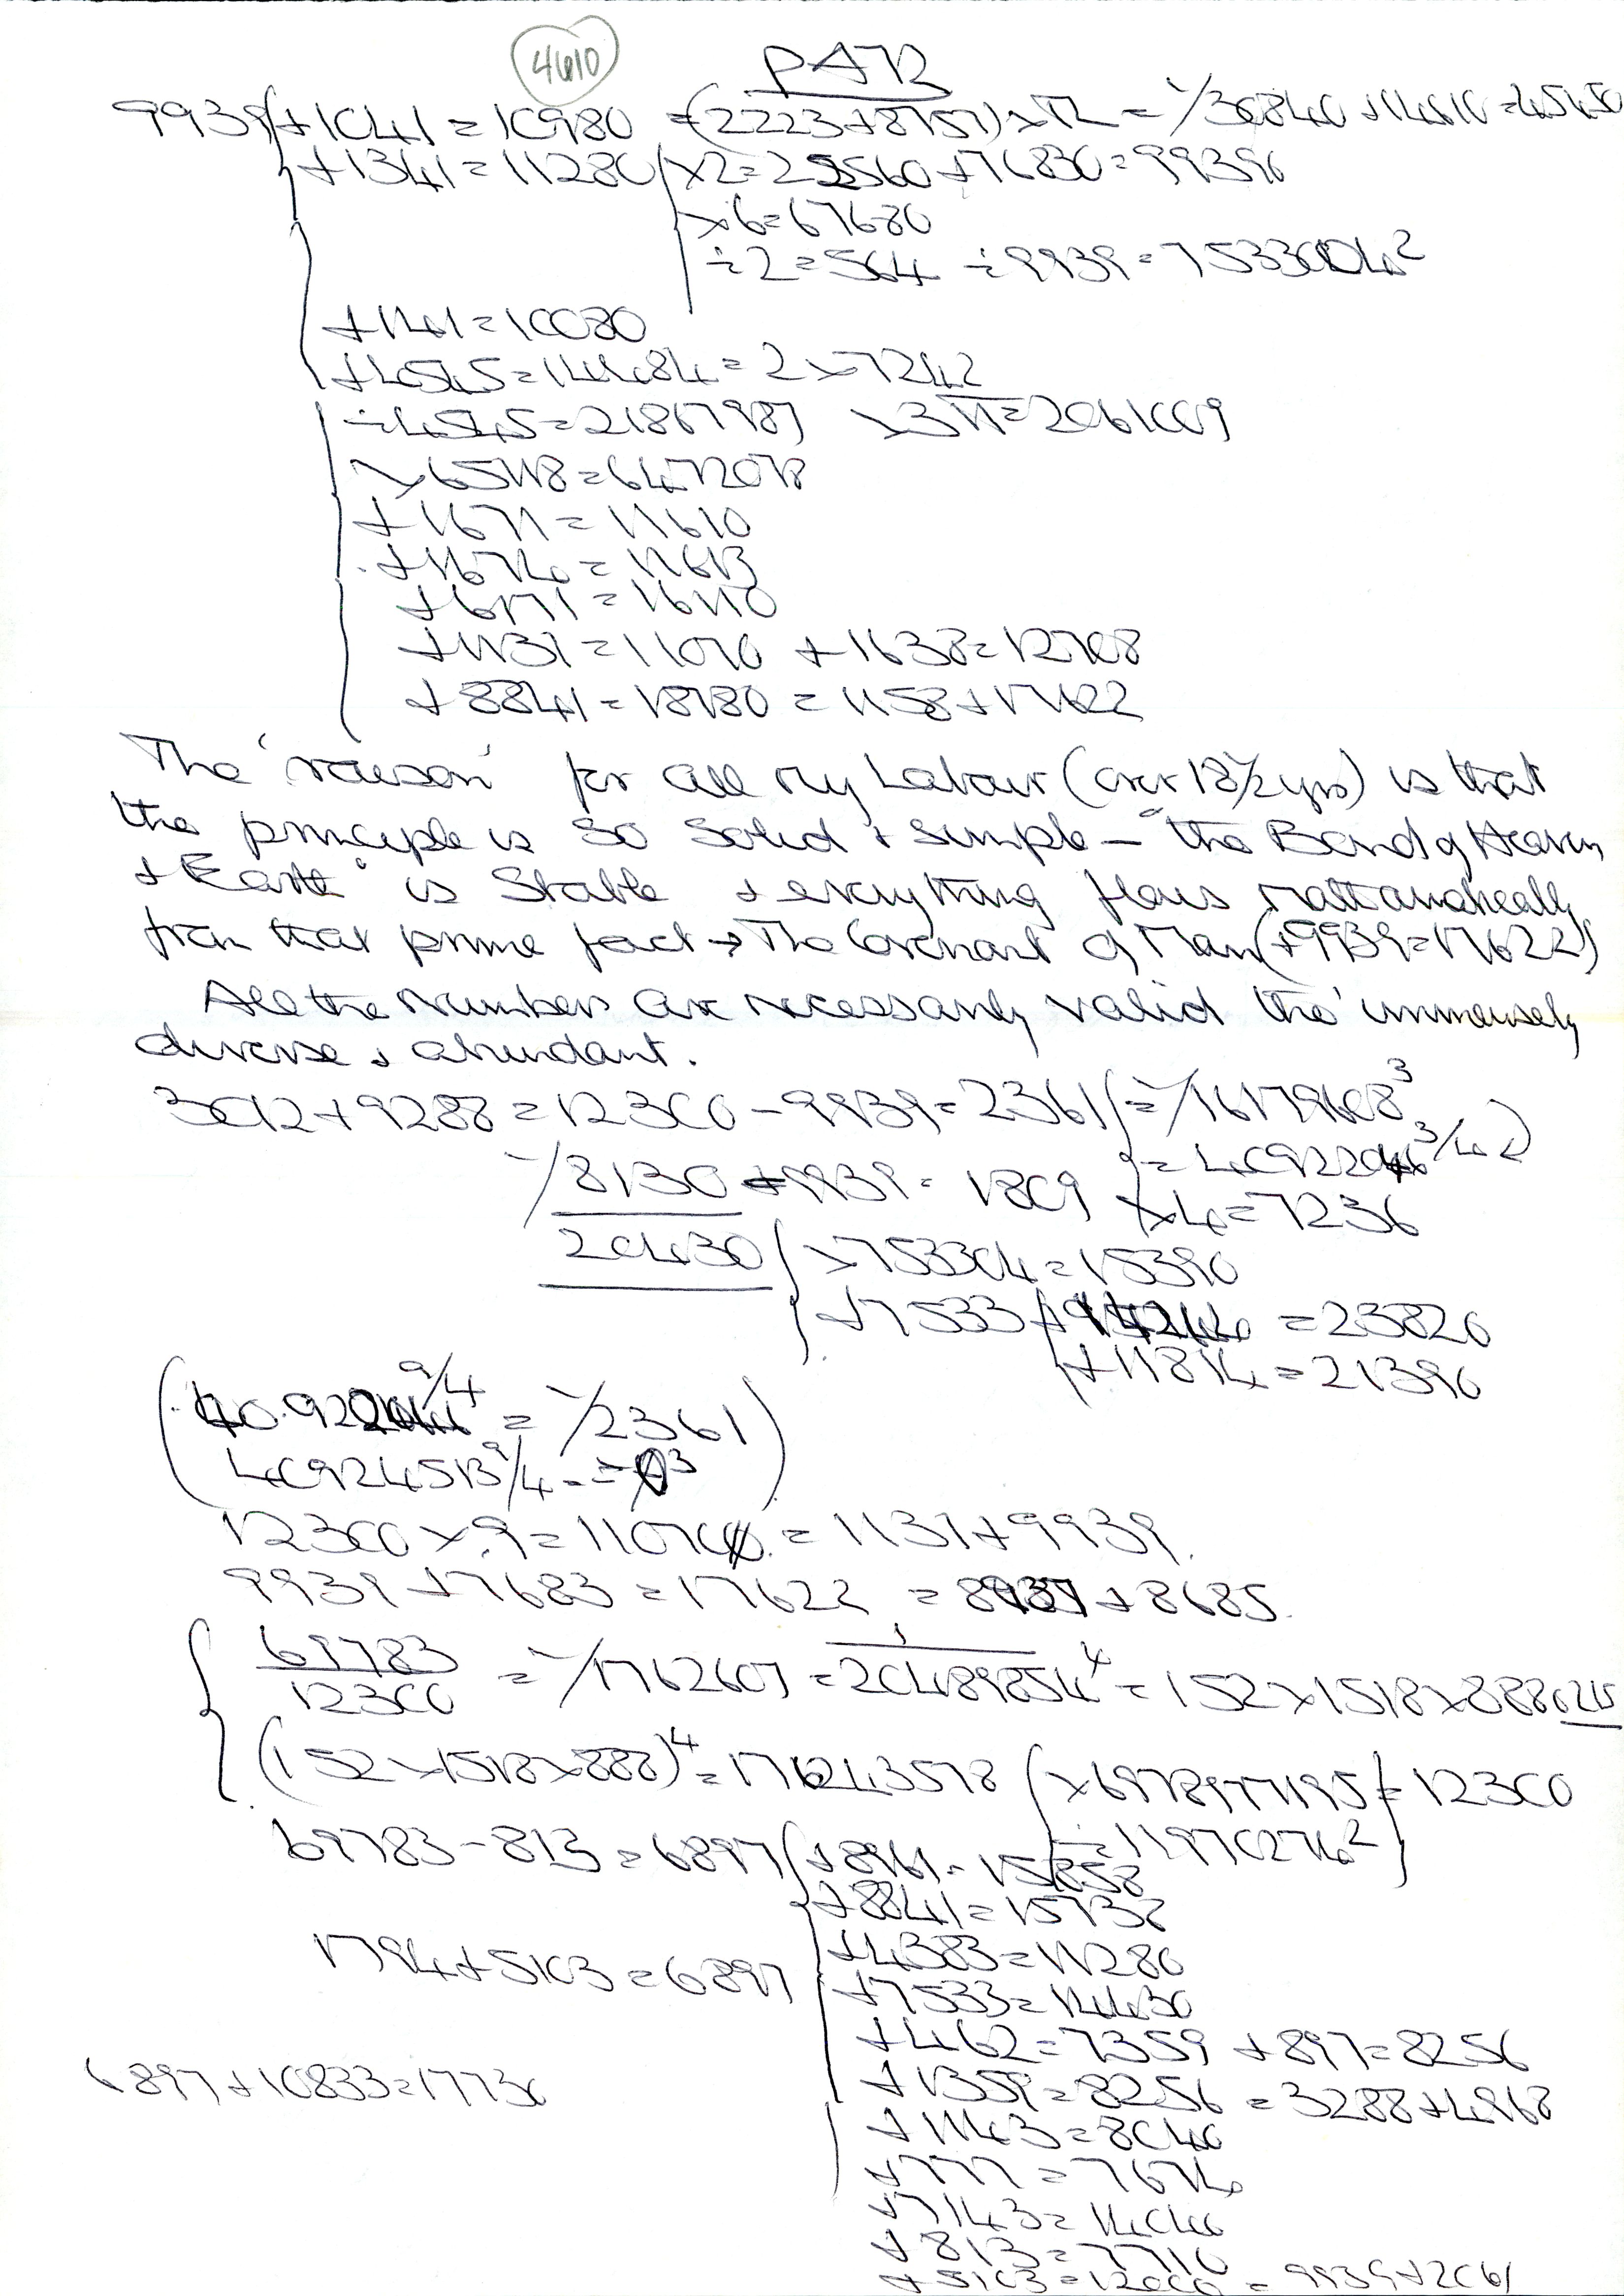 4610
9939 +1041 = 10980 =(2223+8757) = √30840 + 14610 = 45450
+1341 = 11280 ×2=22560+76830=99390
×6=67680
÷2=564 ÷9939=7533004²
+141=10080
+4545=14484=2×7242
÷4545=21867987 ×3π=2061009
×65118=6472078
+1671=11610
+1674=11613
+6171=16110
+1131=11070 +1638=12708
+8841=18780=1158+17622
The 'reason' for all my Labour (over 18½yrs) is that
the principle is so solid & simple – "the Bond of Heaven
& Earth" is Stable & everything flows mathematically
from that prime fact → The Covenant of Man(+9939=17622)
All the numbers are necessarily valid tho' immensely
diverse & abundant.
3012+9288=12300-9939=2361 =√16179608³
=409220 3/4
√8130 9939 = 1809 ×4=7236
20430 ×753304=15390
+7533 =23820
+11814=21390
(40.92 9/4 = √2361)
40924513 9/4
12300×.9=11070 =1131+9939.
9939+7683=17622 =8937+8685.
69783/12300 =√1762607=20489854⁴=152×1518×888
(152×1518×888)⁴=176243578 (×6978977195=12300
÷11970274²
69783-813=6897 +8961=15858
+8841=15738
1794+5103=6897 +4383=11280
+7533=14430
+462=7359 +897=8256
6897+10833=17730 +1359=8256=3288+4968
+1143=8040
+777=7674
+7143=14040
+813=7710
+5103=12000=9939+2061